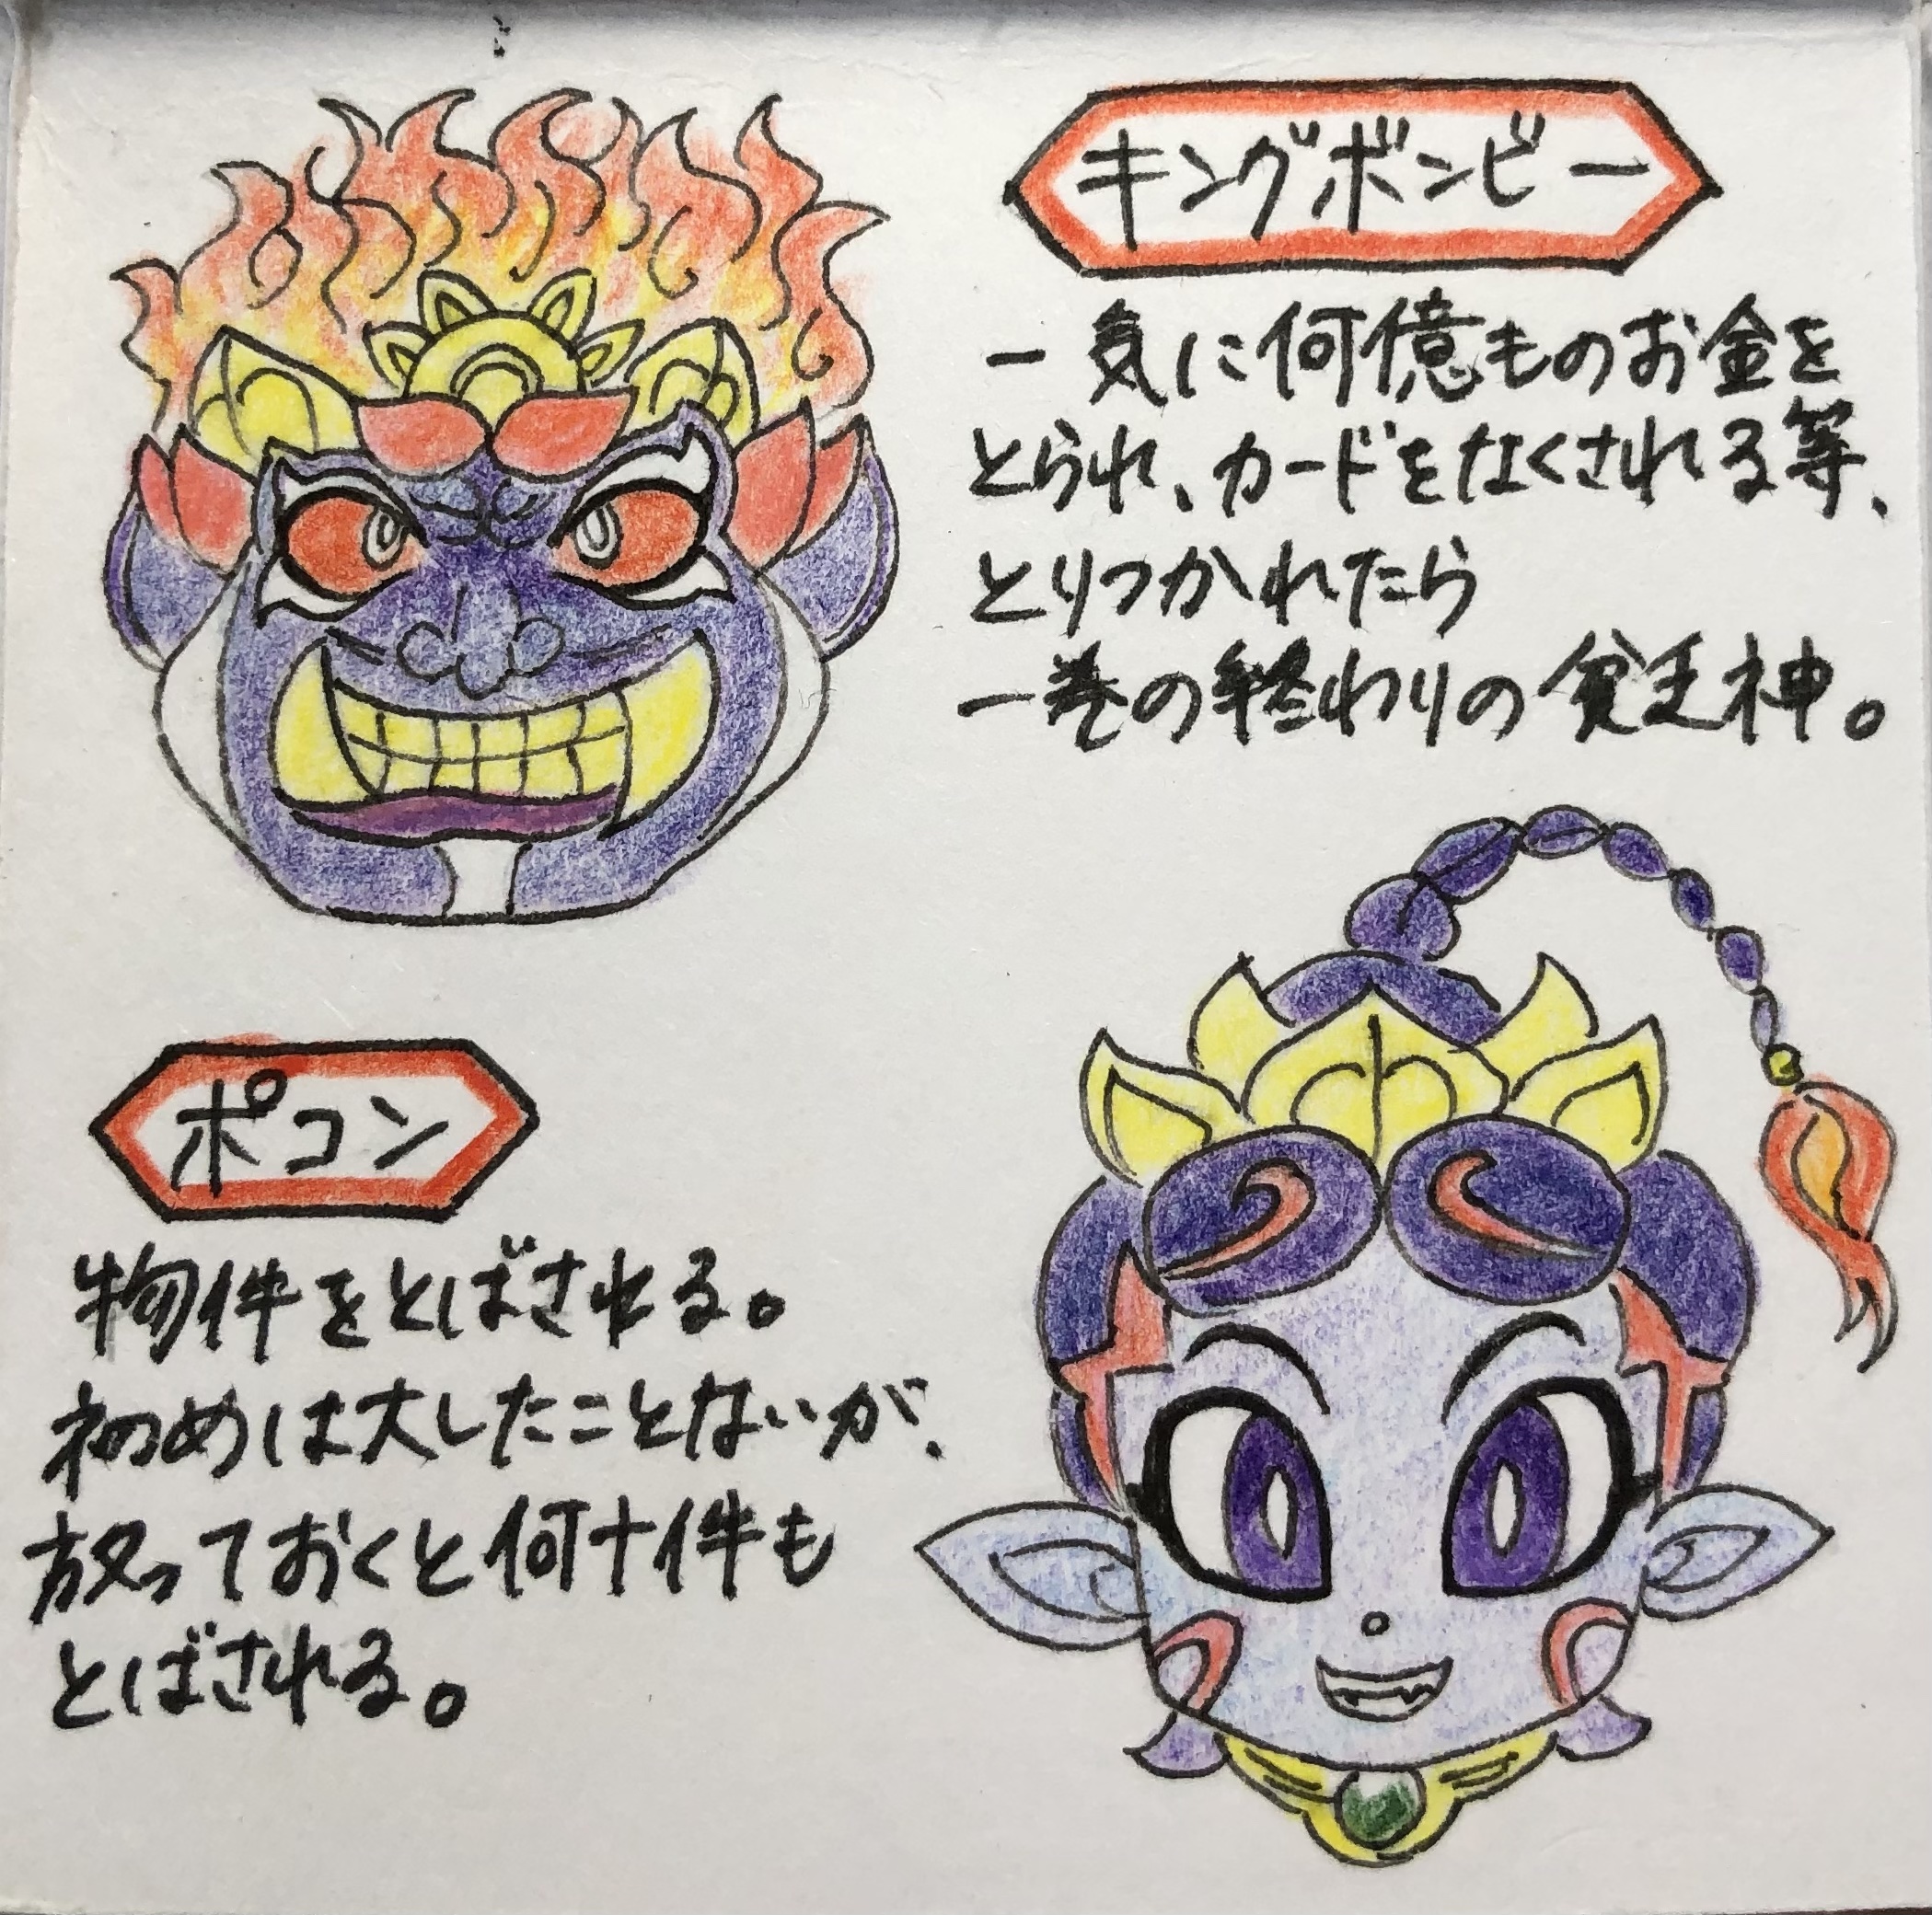 キングボンビー
一気に何億ものお金を
とられ、カードをなくされる等、
とりつかれたら
一巻の終わりの貧乏神。
ポコン
物件をとばされる。
初めは大したことないが、
放っておくと何十件も
とばされる。